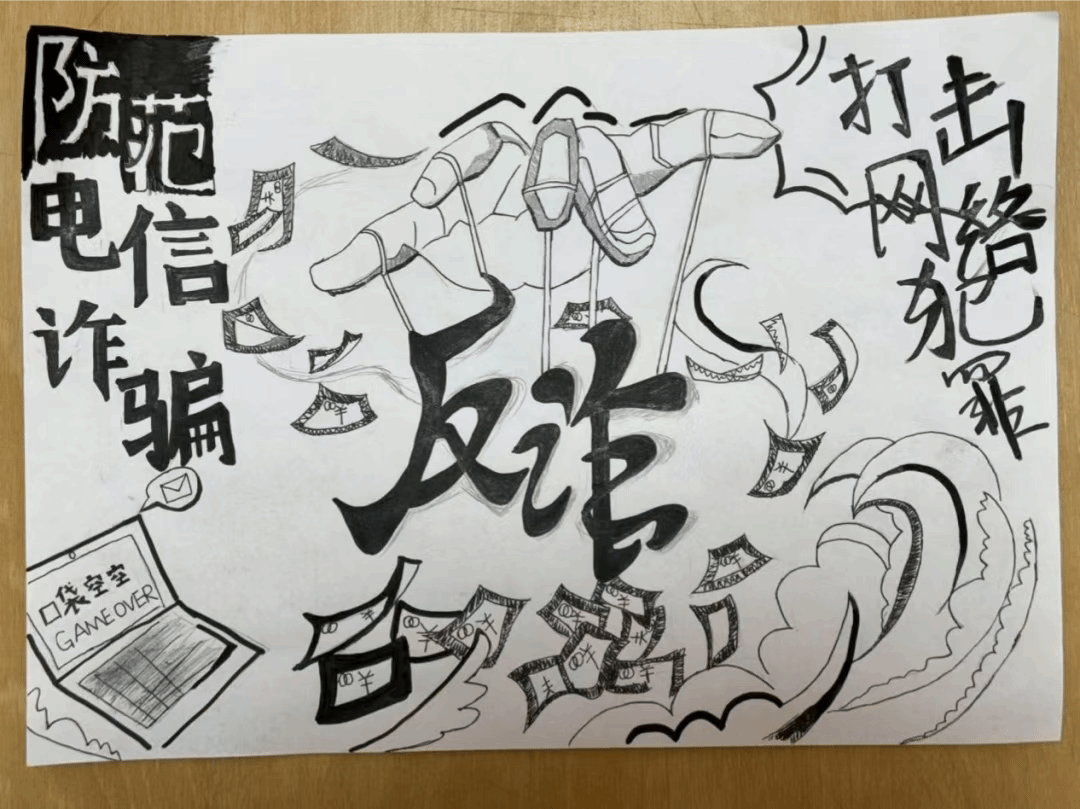 防范
电信
诈骗
打击
网络
犯罪
反诈
口袋空空
GAME OVER